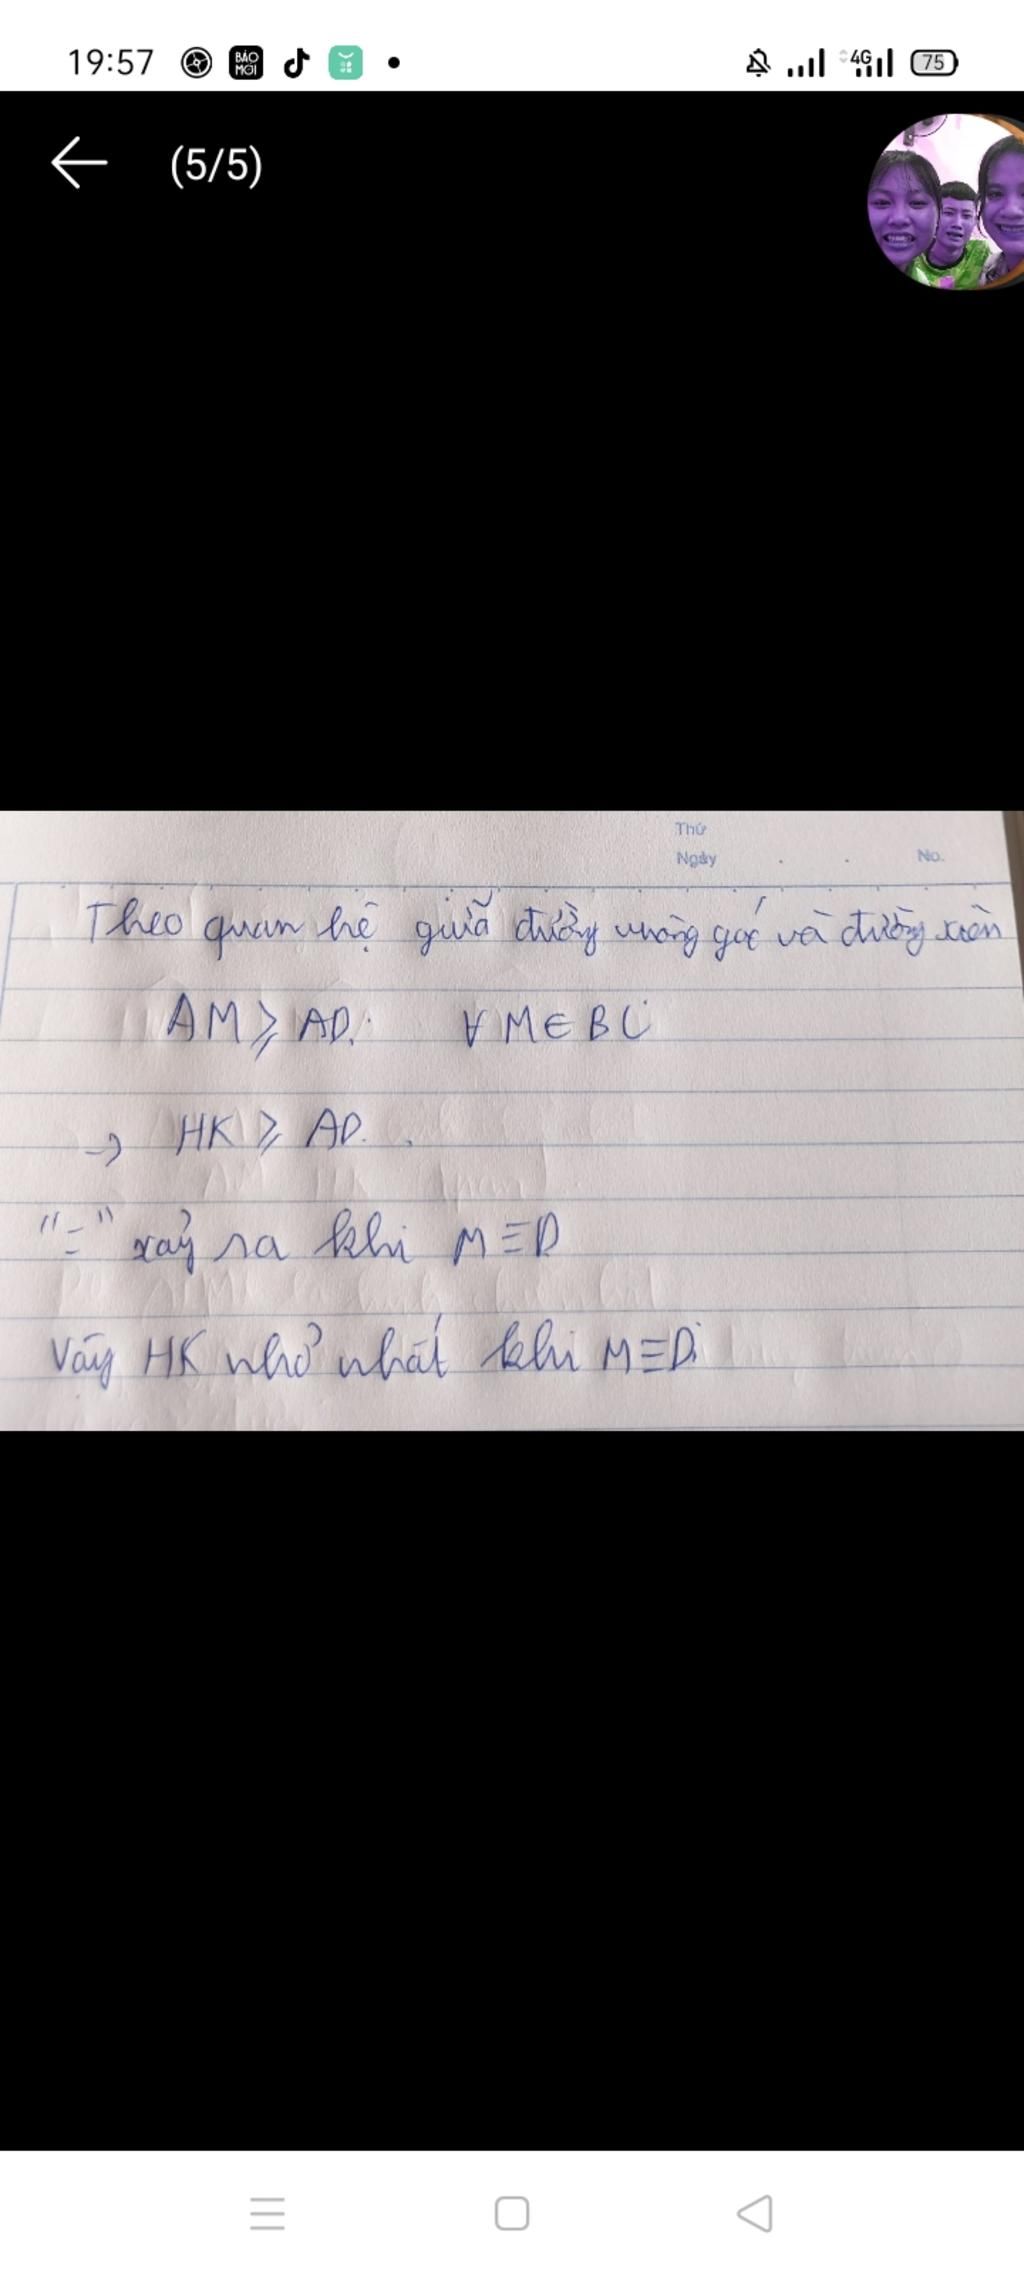 19:57
BÁO MỚI
4G
75
(5/5)
Thứ
Ngày . . No.
Theo quan hệ giữa đường vuông góc và đường xiên
AM ⩾ AD. ∀ M ∈ BC
→ HK ⩾ AD.
"=" xảy ra khi M ≡ D
Vậy HK nhỏ nhất khi M ≡ D.